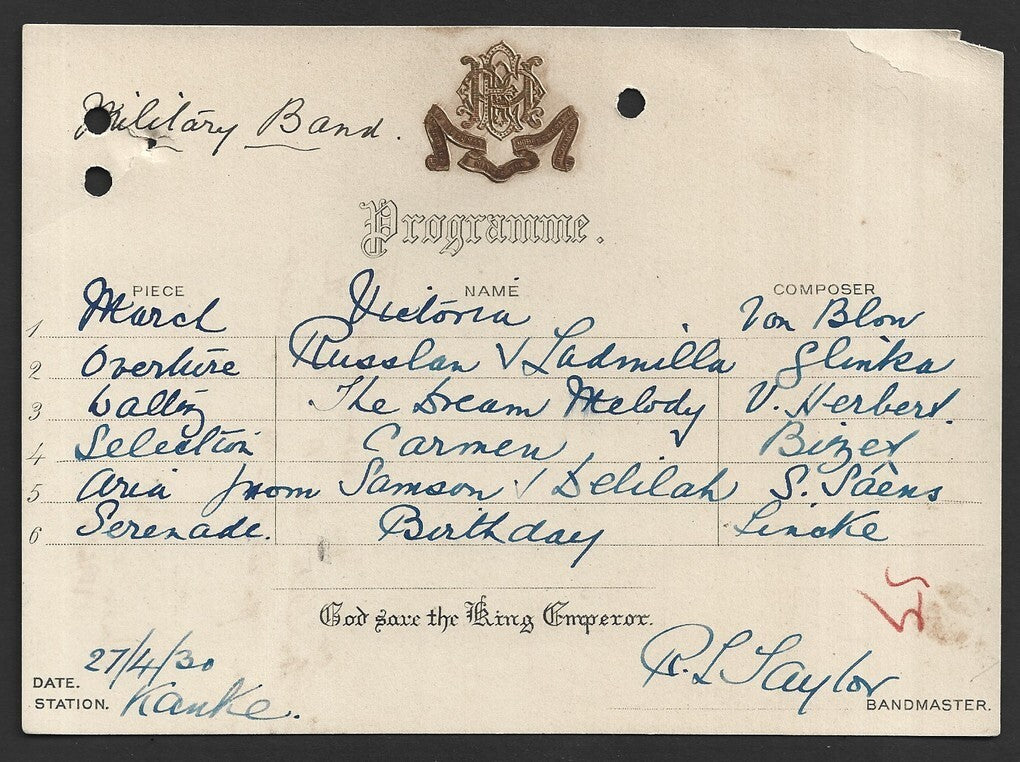 Military Band.
Programme.
PIECE NAME COMPOSER
1 March Victoria Von Blow
2 Overture Russlan & Ladmilla Glinka
3 The Dream Melody V. Herbert
4 Selection Carmen Bizet
5 Aria from Samson & Delilah S. Säens
6 Serenade. Birthday Lincke
God save the King Emperor.
DATE. 27/4/30
STATION. Kanke.
R. L Taylor BANDMASTER.